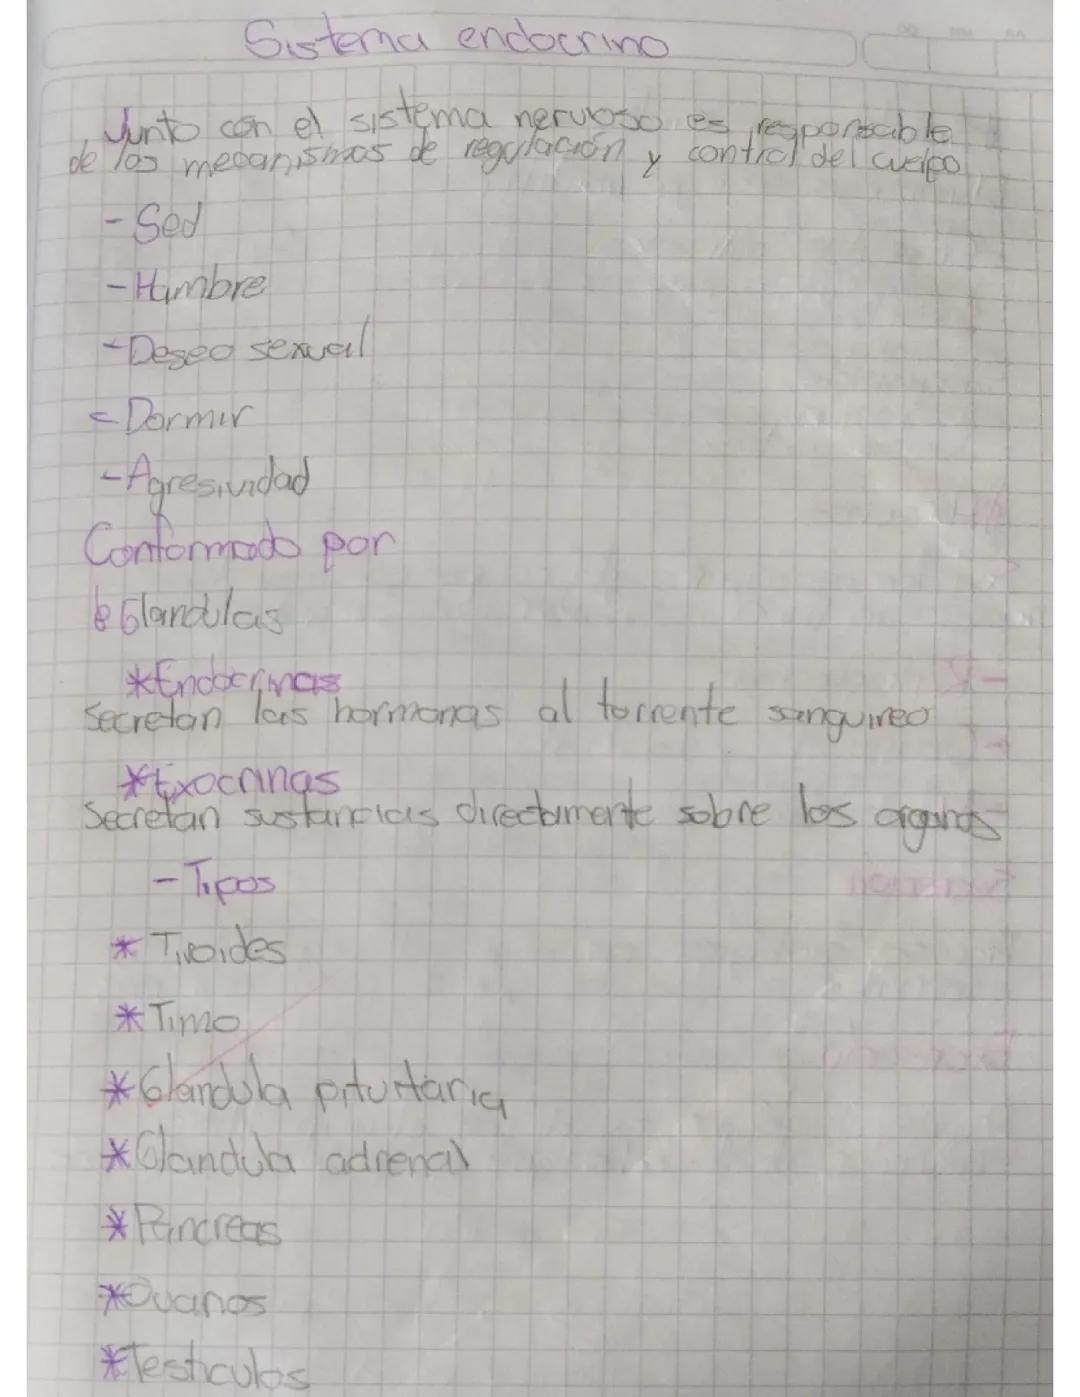 Sistema endocrino
Junto con el sistema nervioso es responsable
de los mecanismos de regulación y control del cuerpo
- Sed
- Hambre
- Deseo sexual
- Dormir
- Agresividad
Conformado por
Glandulas
* Endocrinas
Secretan las hormonas al torrente sanguineo
* Exocrinas
Secretan sustancias directamente sobre los organos
- Tipos
* Tiroides
* Timo
* Glandula pituitaria
* Glandula adrenal
* Páncreas
* Ovarios
* Testiculos